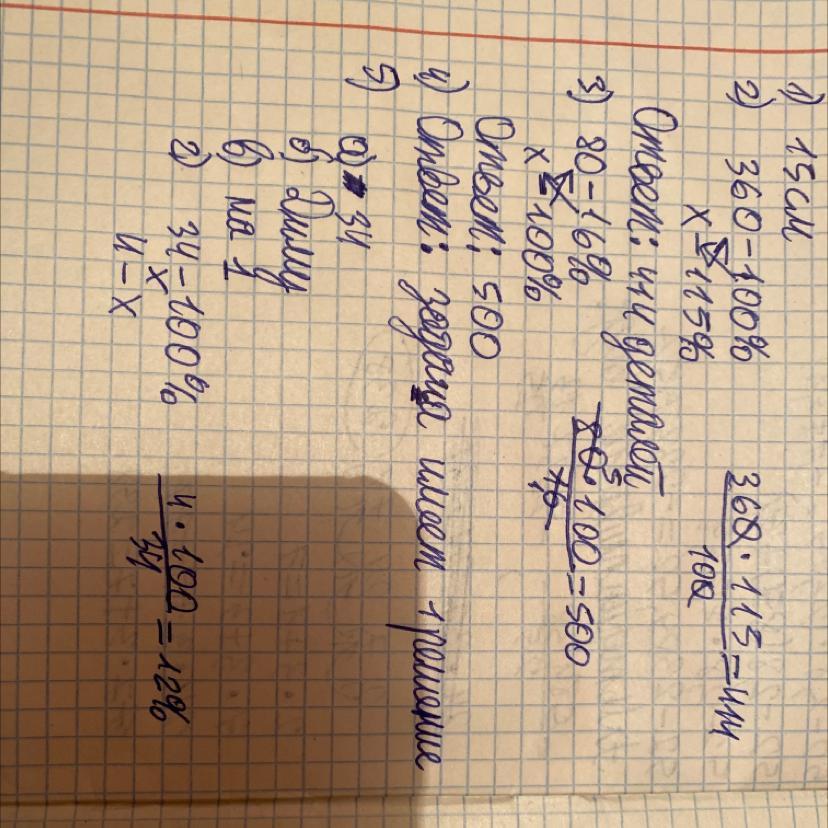 1) 15 см
2) 360 – 100%
x – 115%
360 · 115 / 100 = 414
Ответ: 414 деталей
3) 80 – 16%
x – 100%
80 · 100 / 16 = 500
5
Ответ: 500
4) Ответ: задача имеет 1 решение
5)
а) 34
б) Диму
в) на 1
г) 34 – 100%
4 – x
4 · 100 / 34 = 12%